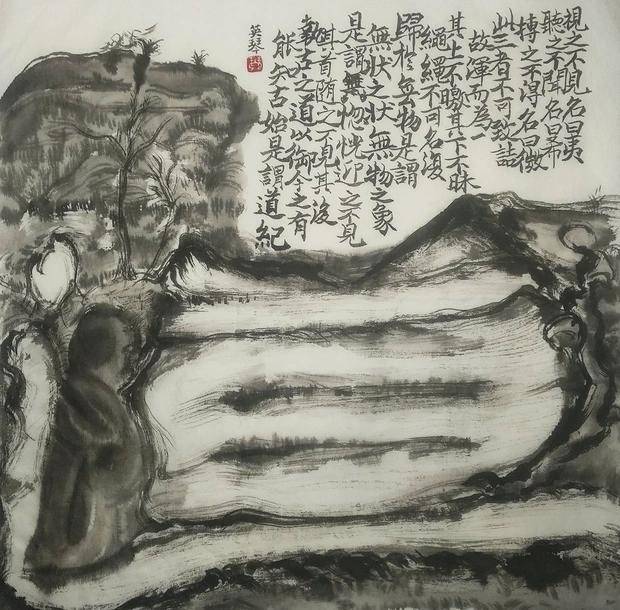 視之不見名曰夷
聽之不聞名曰希
轉之不得名曰微
此三者不可致詰
故渾而為一
其上不曒其下不昧
繩繩不可名復
歸於無物是謂
無狀之狀無物之象
是謂無惚恍迎之不見
其首随之不見其後
執古之道以御今之有
能知古始是謂道紀
英琴